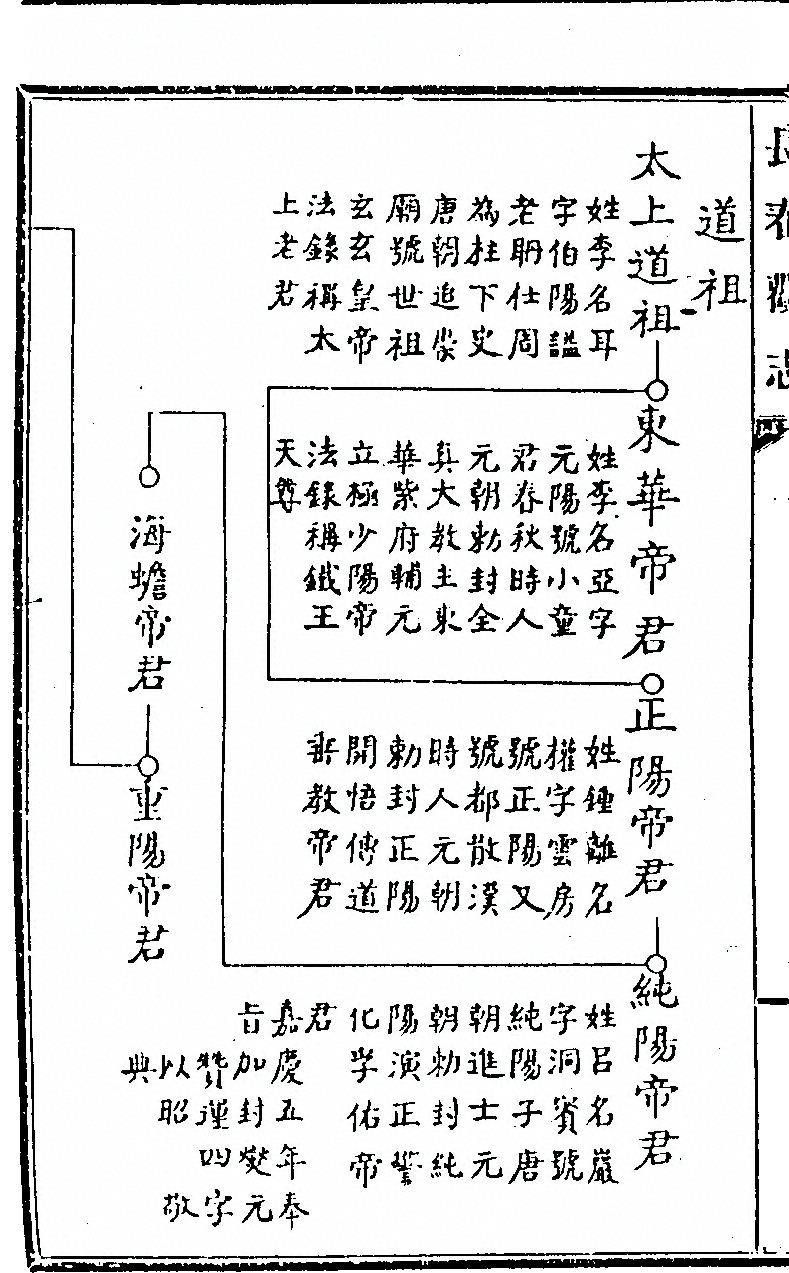 長春觀志
道祖
太上道祖
姓李名耳
字伯陽諡
老聃仕周
為柱下史
唐朝追崇
廟號世祖
玄玄皇帝
法錄稱太
上老君
東華帝君
姓李名亞字
元陽號小童
君春秋時人
元朝勅封全
真大教主東
華紫府輔元
立極少陽帝
法錄稱鐵王
天尊
正陽帝君
姓鍾離名
權字雲房
號正陽又
號都散漢
時人元朝
勅封正陽
開悟傳道
垂教帝君
純陽帝君
姓呂名巖
字洞賓號
純陽子唐
朝進士元
朝勅封純
陽演正警
化孚佑帝
君
嘉慶五年奉
旨加封燮元
贊運四字
以昭敬
典
海蟾帝君
重陽帝君